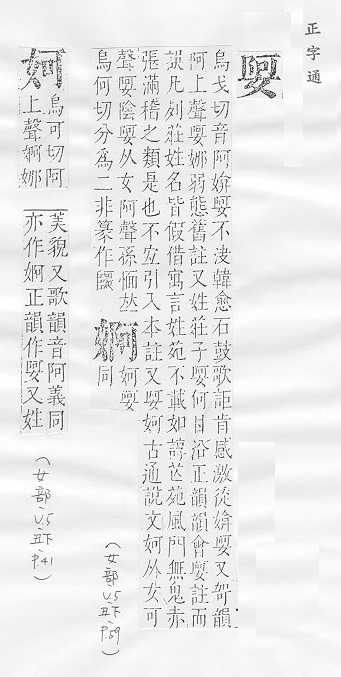 正字通
娿
烏戈切音阿媕娿不決韓愈石鼓歌詎肯感激徒媕娿又哿韻
阿上聲娿娜弱態舊註又姓莊子娿何甘沿正韻韻會娿註而
誤凡列莊姓名皆假借寓言姓苑不載如諄芒苑風門無鬼赤
張滿稽之類是也不宜引入本註又娿妸古通說文妸从女可
聲娿陰娿从女阿聲孫愐𠀤
烏何切分爲二非篆作
婀
妸娿
同
(女部,V.5丑下,P.59)
妸
烏可切阿
上聲婀娜
美貌又歌韻音阿義同
亦作婀正韻作娿又姓
(女部,V.5丑下,P.41)